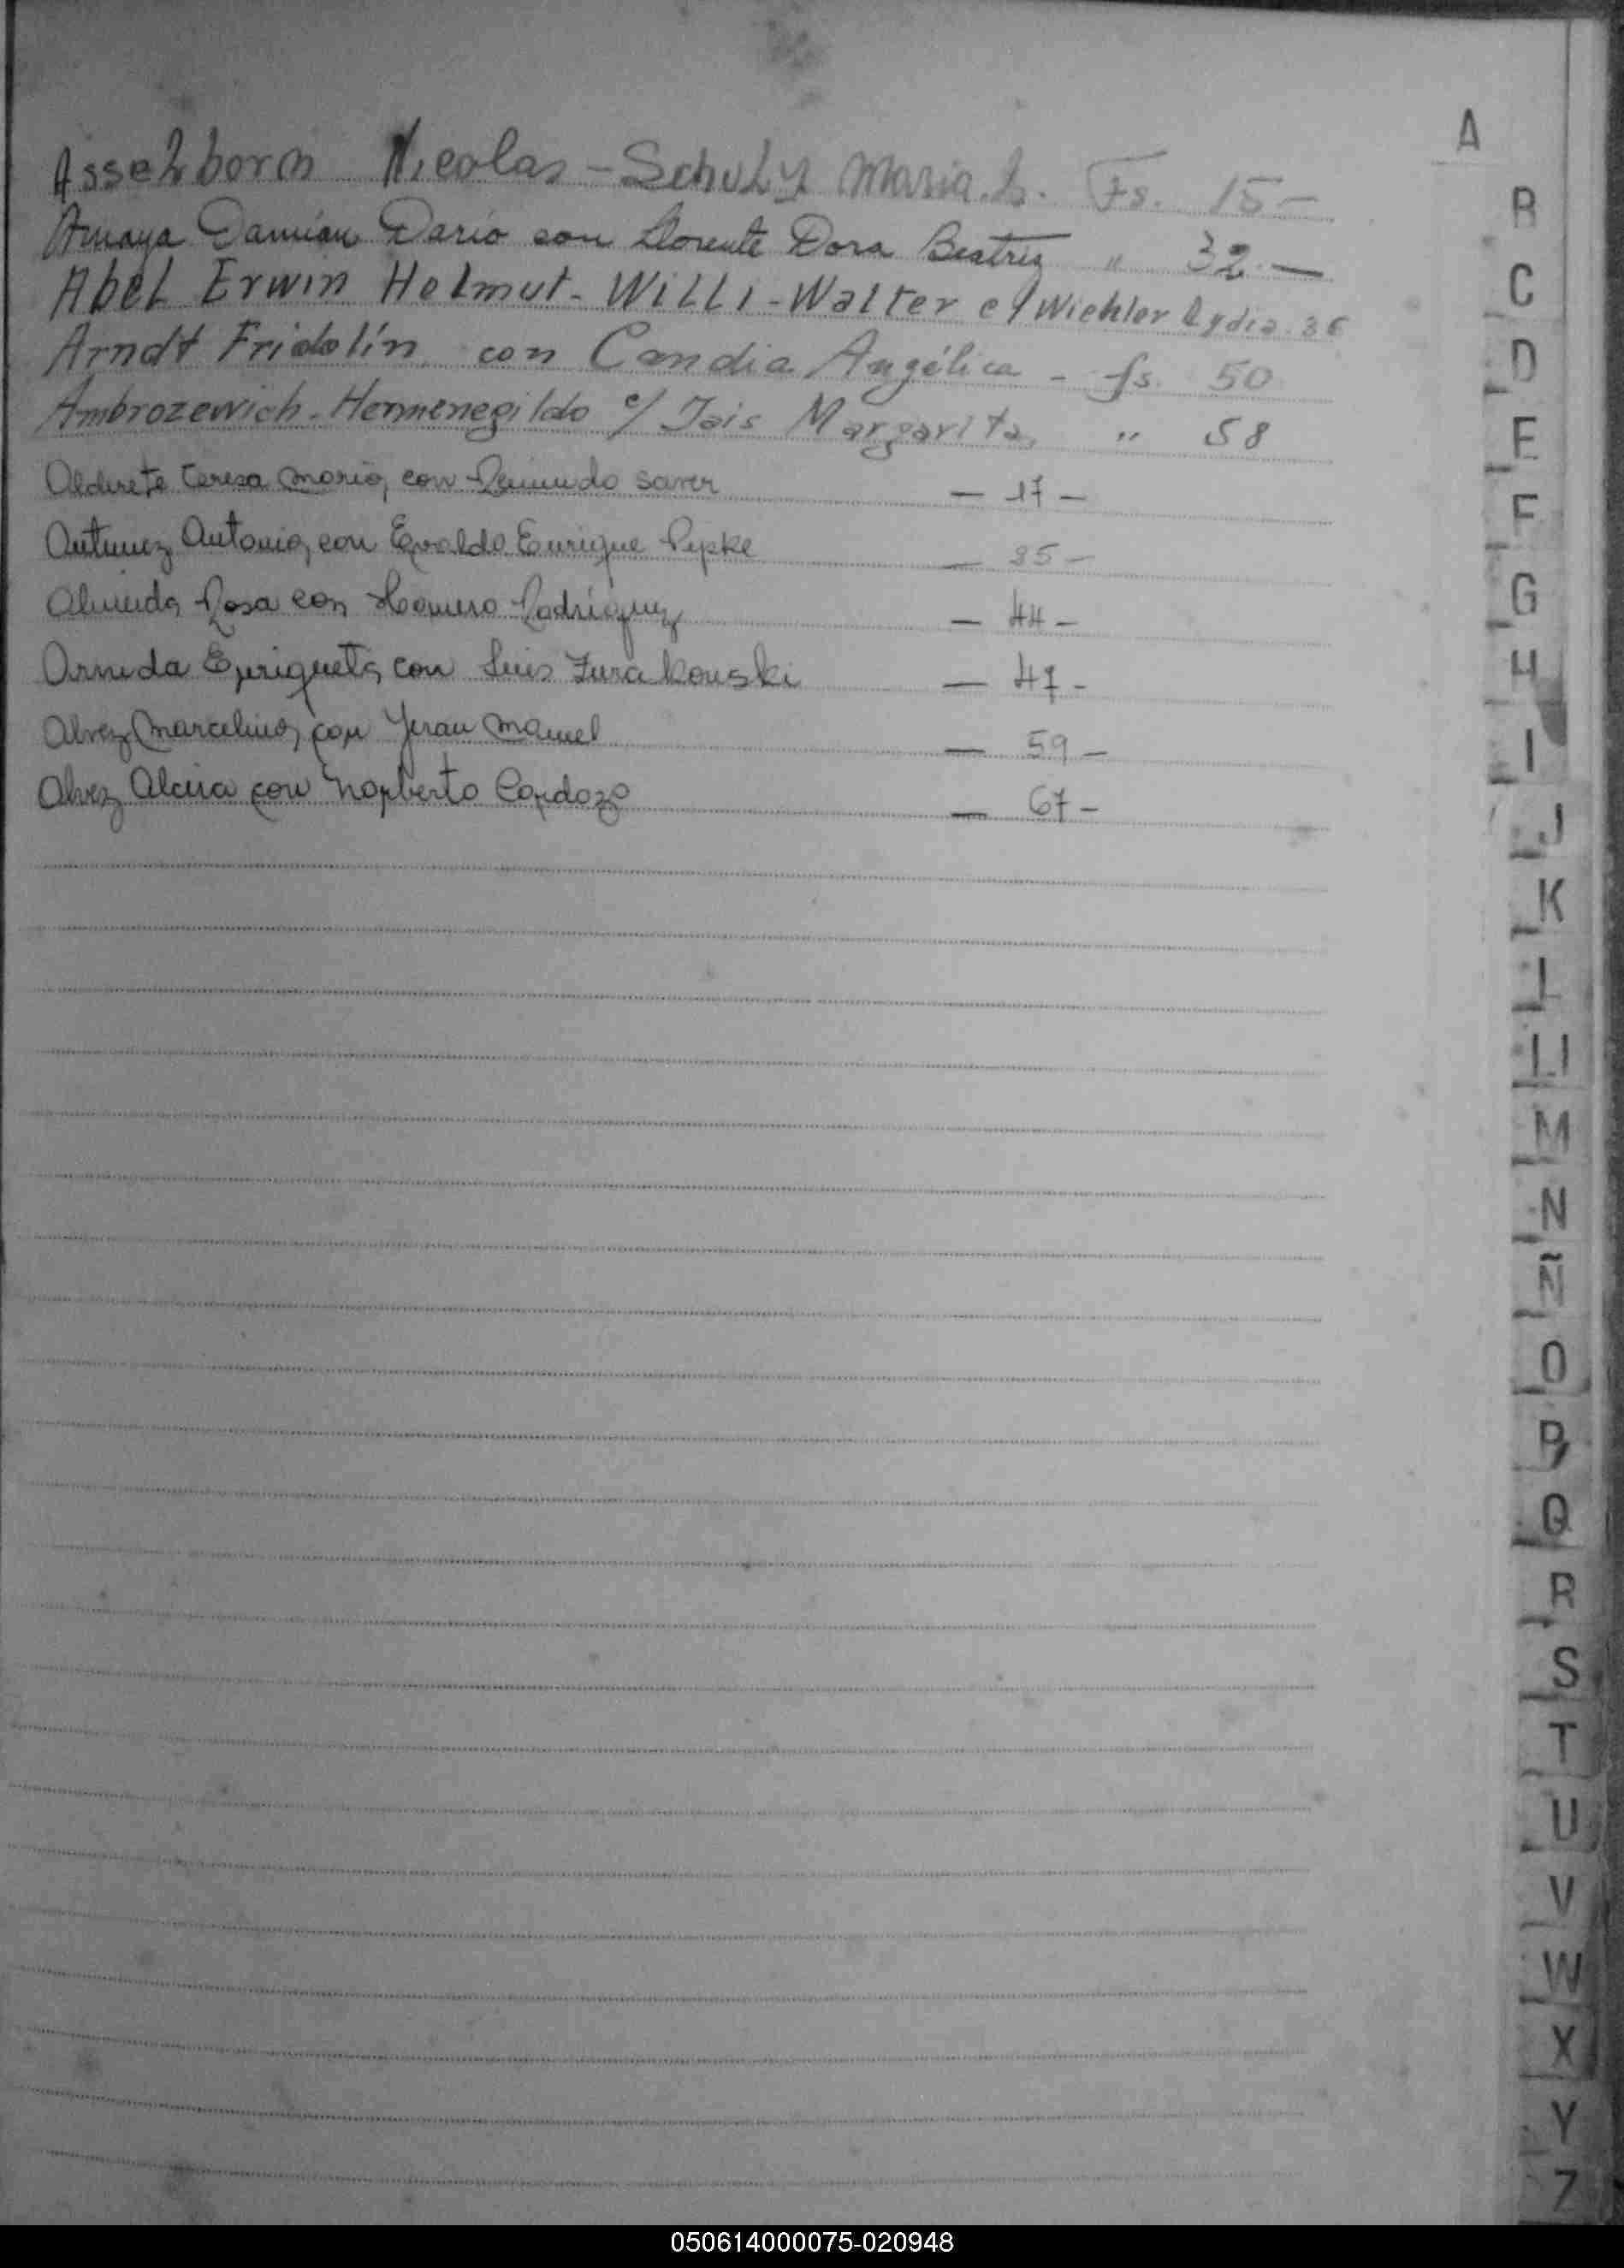 A
Assehborn Nicolas - Schulz Maria. Fs. 15 -
Amaya Damián Darío con Llorente Dora Beatriz " 32. —
Abel Erwin Helmut - Willi - Walter c/ Wichler Lydia. 36
Arndt Fridolín con Candia Angélica - fs. 50
Ambrozewich - Hermenegildo c/ Jais Margarita " 58
Alderete Teresa Maria, con Reimundo Saver — 17 -
Antunez Antonia, con Evaldo Enrique Pepke — 35 -
Almeida, Rosa con Homero Rodríguez — 44 -
Arneda Enriqueta, con Luis Zurakouski — 47 -
Alvez Marcelina, con Manuel — 59 -
Alvez Alcira con Norberto Cardozo — 67 -
B
C
D
E
F
G
H
I
J
K
L
Ll
M
N
Ñ
O
P
Q
R
S
T
U
V
W
X
Y
Z
050614000075-020948